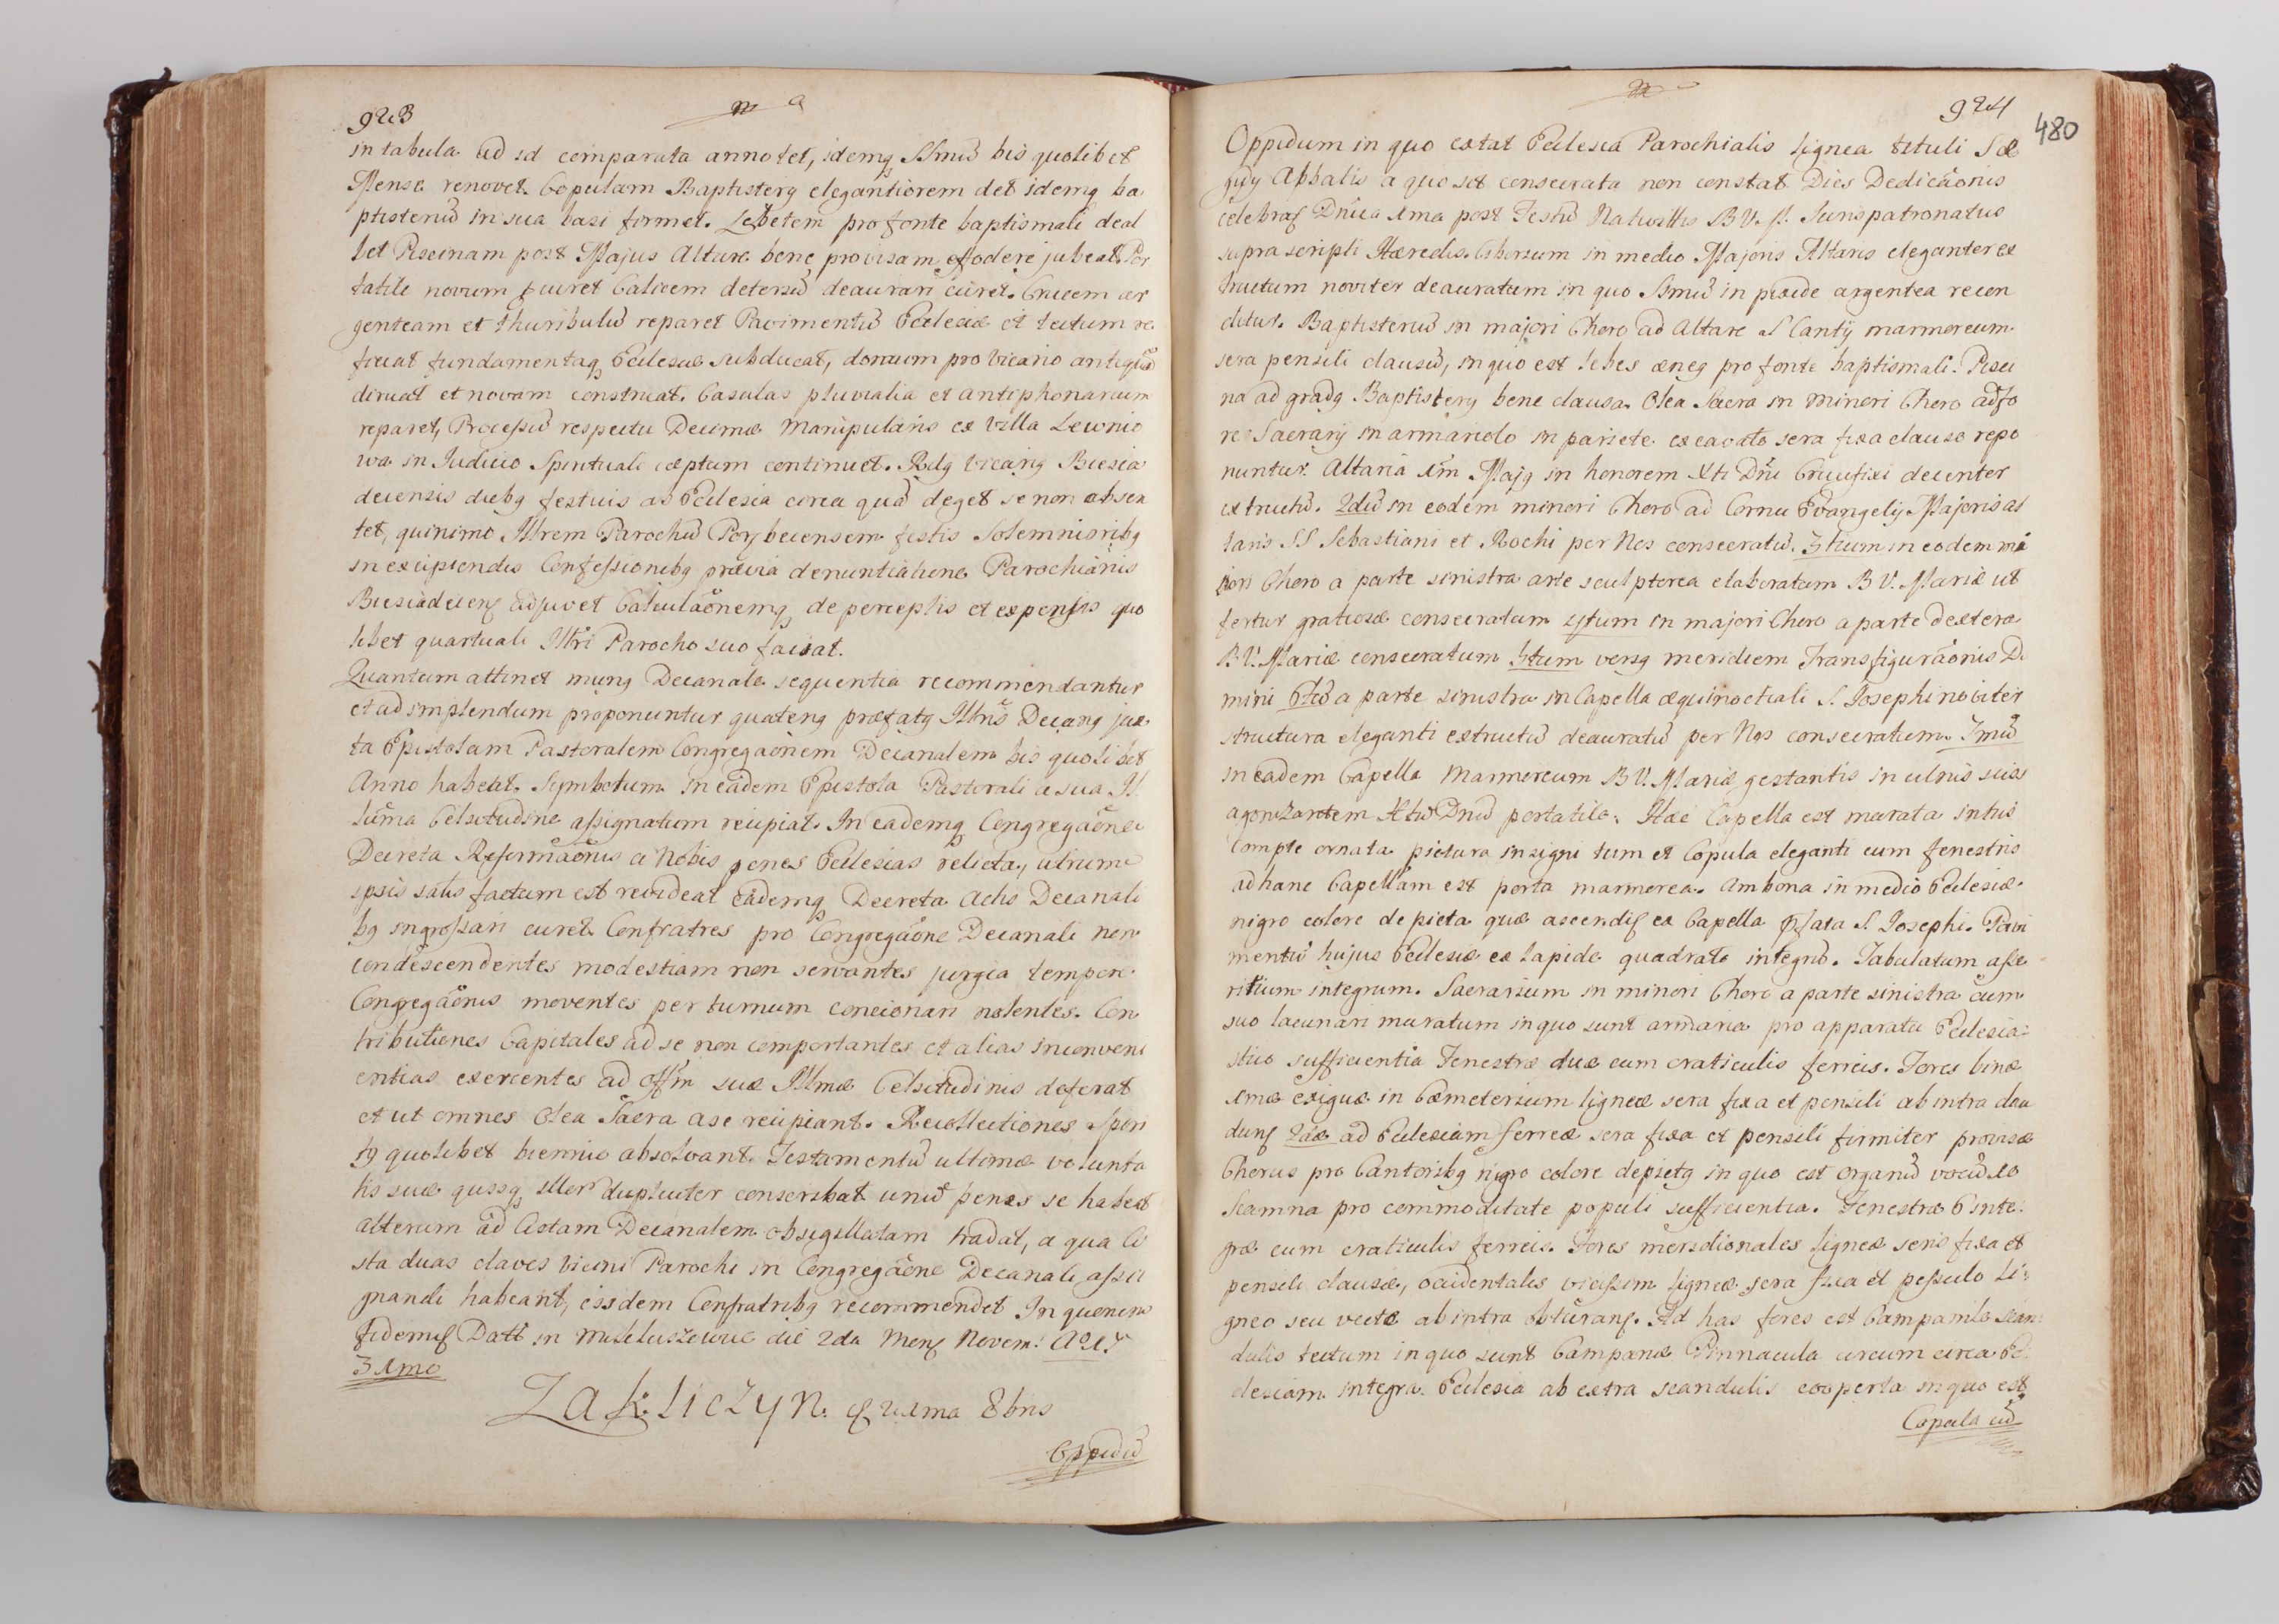 923
in tabula ad id comparata annotet, idemq SSmũ bis quolibet
Mense renovet. Copulam Baptisterij elegantiorem det idemq ba
ptisteriũ in sua basi firmet. Lebetem pro fonte baptismali deal
bet Piscinam post Majus Altare bene provisam effodere jubeat. Por
tatile novum procuret Calicem detersũ deaurari curet. Crucem ar
genteam et thuribulũ reparet Pavimentũ Ecclesiæ et tectum re
ficiat fundamentaq Ecclesiæ subducat, domum pro Vicario antiquã
diruat et novam construat. Casulas pluvialia et antiphonarium
reparet, Processũ respectu Decimæ Manipularis ex Villa Lewnio
wa in Judicio Spirituali cæptum continuet. Rdg Vicarig Biesia
decensis diebg festivis ab Ecclesia circa quã deget se non absen
tet, quinimo Illrem Parochũ Porbecensem festis Solemnioribg
in excipiendis Confessionibg prævia denuntiatione Parochianis
Biesiadecens adjuvet Calculaõnemq de perceptis et expensis quo
libet quartuali Illri Parocho suo faciat.
Quantum attinet munq Decanale sequentia recommendantur
et ad implendum proponuntur quateng præfatg Illris Decang jux
ta Epistolam Pastoralem Congregaõnem Decanalem bis quolibet
Anno habeat. Symbolum in eadem Epistola Pastorali a sua Il
lũma Celsitudine assignatum recipiat. In eademq Congregaõne
Decreta Reformaõnis a Nobis penes Ecclesias relicta, utrum
ipsis satis factum est revideat eademq Decreta Actis Decanali
bg ingrossari curet. Confratres pro Congregaõne Decanali non
condescendentes modestiam non servantes jurgia tempore
Congregaõnis moventes per turnum concionari nolentes. Con
tributiones Capitales ad se non comportantes et alias inconveni
entias exercentes ad Offm suæ Illmæ Celsitudinis deferat
et ut omnes Olea Sacra a se recipiant. Recollectiones Spiri
tg quolibet biennio absolvant. Testamentũ ultimæ volunta
tis suæ quisq iller dupliciter conscribat unũ penes se habeat
alterum ad Cistam Decanalem obsigillatam tradat, a qua Ci
sta duas claves Vicini Parochi in Congregaõne Decanali assi
gnandi habeant, iisdem Confratribg recommendet In quorum
fidem Datt in die 2da Mens Novem: A
3 Xmo
Zakliczyn 8bris
Oppidũ
924
480
Oppidum in quo extat Ecclesia Parochialis lignea tituli S Æ
gidij Abbatis a quo sit consecrata non constat Dies Dedicaõnis
celebras Dnica 1ma post Festũ Nativittis B V. M. Jurispatronatus
suprascripti Hæredis. Ciborium in medio Majoris Altaris eleganter ex
tructum noviter deauratum in quo SSmũ in pixide argentea recon
ditur. Baptisteriũ in majori Choro ad Altare S. Cantij marmoreum
sera pensili clausũ, in quo est lebes æneg pro fonte baptismali. Pisci
na ad gradg Baptisterij bene clausa. Olea Sacra in minori Choro ad fo
res Sacrarij in armariolo in pariete excavato sera fixa clauso repo
nuntur. Altaria 1m Majg in honorem Xti Dni Crucifixi decenter
extructũ. 2dũ in eodem minori Choro ad Cornu Evangelij Majoris al
taris SS Sebastiani et Rochi per Nos consecratũ. 3tium in eodem mi
nori Choro a parte sinistra arte sculptorea elaboratum B V. Mariæ ut
fertur gratiosæ consecratum 4tum in majori Choro a parte dextera
B V. Mariæ consecratum 5tum versg meridiem Transfiguraõnis Do
mini 6tũ a parte sinistra in Capella æquinoctiali S. Josephi noviter
structura eleganti extructũ deauratũ per Nos consecratum. 7mũ
in eadem Capella Marmoreum B V. Mariæ gestantis in ulnis suis
agonizantem Xtũ Dnũ portatile. Hæc Capella est murata intus
compte ornata pictura insigni tum et Copula eleganti cum fenestris
ad hanc Capellam est porta marmorea. Ambona in medio Ecclesiæ
nigro colore depicta quæ ascendis ex Capella pfata S. Josephi. Pavi
mentũ hujus Ecclesiæ ex lapide quadrato integrũ. Tabulatum asse
ritium integrum. Sacrarium in minori Choro a parte sinistra cum
suo lacunari muratum in quo sunt armaria pro apparatu Ecclesia:
stico sufficientia Fenestræ duæ cum craticulis ferreis. Fores binæ
1mæ exiguæ in Cæmeterium ligneæ sera fixa et pensili ab intra clau
dunt 2dæ ad Ecclesiam ferreæ sera fixa et pensili firmiter provisæ
Chorus pro Cantoribg nigro colore depictg in quo est Organũ vocũ 10
Scamna pro commoditate populi sufficientia. Fenestræ 6 inte:
græ cum craticulis ferreis. Fores meridionales ligneæ seris fixa et
pensili clausæ, occidentales vicissim ligneæ sera fixa et pessulo li:
gneo seu vecte ab intra obturans. Ad has fores est Campanile scan:
dulis tectum in quo sunt Campanæ Pinnacula circum circa Ec:
clesiam integra. Ecclesia ab extra scandulis cooperta in quo est
Copula cũ